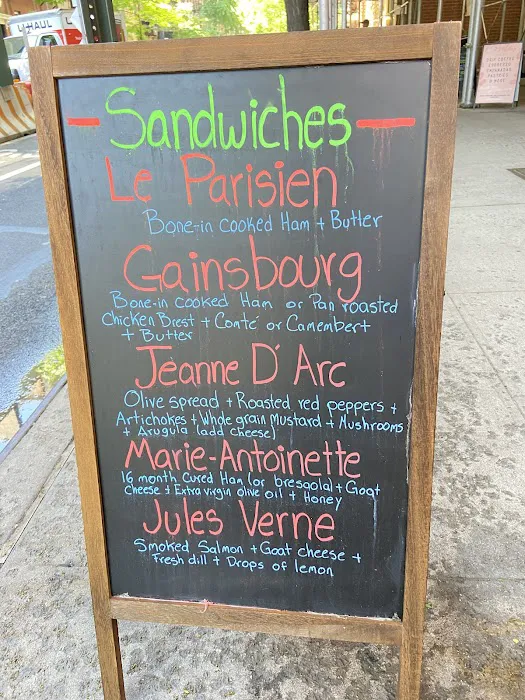 U-HAUL
Sandwiches
Le Parisien
Bone-in cooked Ham + Butter
Gainsbourg
Bone-in cooked Ham or Pan roasted
Chicken Brest + Comté or Camembert
+ Butter
Jeanne D'Arc
Olive spread + Roasted red peppers +
Artichokes + Whole grain Mustard + Mushrooms
+ Arugula (add cheese)
Marie-Antoinette
16 month Cured Ham (or bresaola) + Goat
Cheese + Extra virgin olive oil + Honey
Jules Verne
Smoked Salmon + Goat cheese +
Fresh dill + Drops of lemon